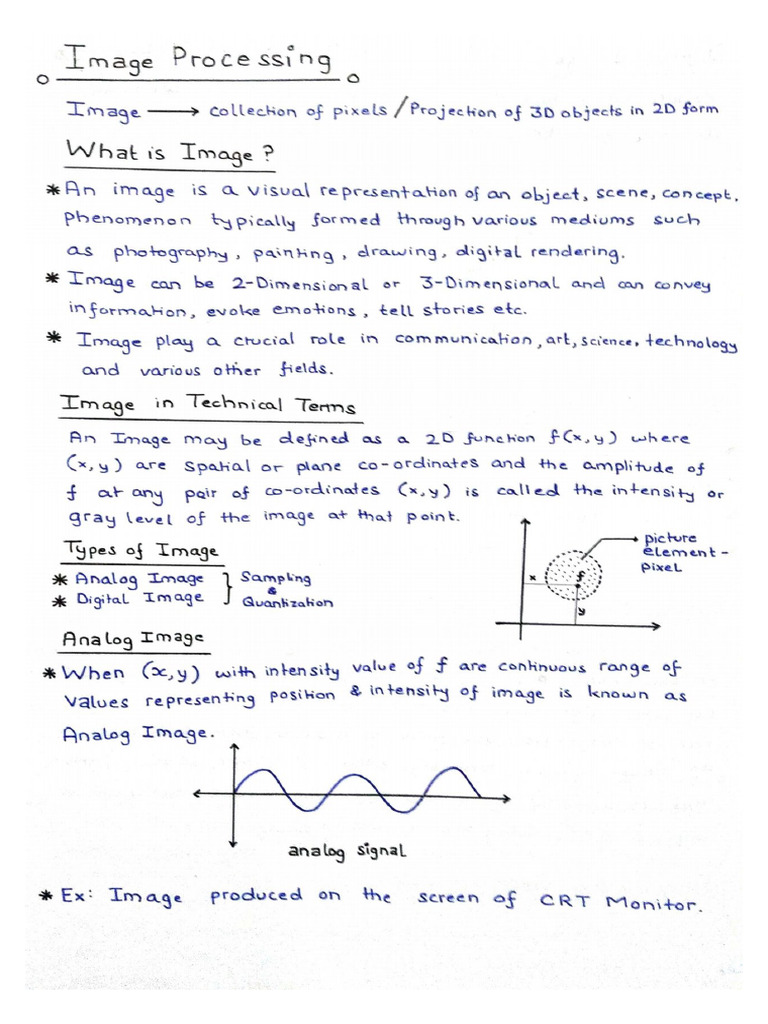 Image Processing
Image → collection of pixels / Projection of 3D objects in 2D form
What is Image ?
* An image is a visual representation of an object, scene, concept,
phenomenon typically formed through various mediums such
as photography, painting, drawing, digital rendering.
* Image can be 2-Dimensional or 3-Dimensional and can convey
information, evoke emotions, tell stories etc.
* Image play a crucial role in communication, art, science, technology
and various other fields.
Image in Technical Terms
An Image may be defined as a 2D function f(x,y) where
(x,y) are spatial or plane co-ordinates and the amplitude of
f at any pair of co-ordinates (x,y) is called the intensity or
gray level of the image at that point.
Types of Image
* Analog Image } Sampling
&
* Digital Image Quantization
picture
element-
pixel
x
f
y
Analog Image
* When (x,y) with intensity value of f are continuous range of
values representing position & intensity of image is known as
Analog Image.
analog signal
* Ex: Image produced on the screen of CRT Monitor.